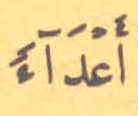 أَعْدَآءَ